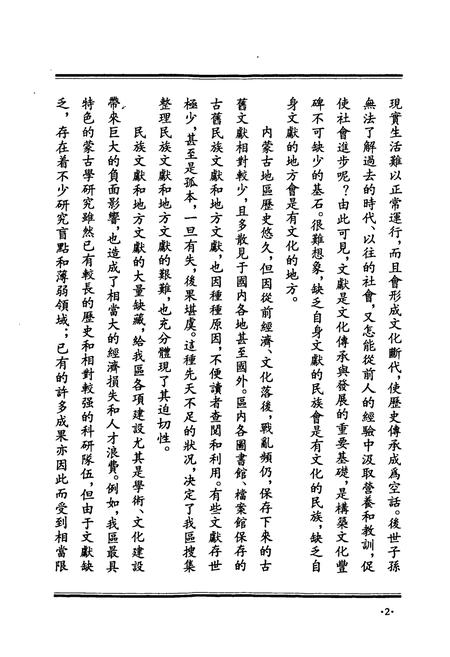 現實生活難以正常運行，而且會形成文化斷代，使歷史傳承成爲空話。後世子孫
無法了解過去的時代、以往的社會，又怎能從前人的經驗中汲取營養和教訓，促
使社會進步呢？由此可見，文獻是文化傳承與發展的重要基礎，是構築文化豐
碑不可缺少的基石。很難想象，缺乏自身文獻的民族會是有文化的民族，缺乏自
身文獻的地方會是有文化的地方。
内蒙古地區歷史悠久，但因從前經濟、文化落後，戰亂頻仍，保存下來的古
舊文獻相對較少，且多散見于國内各地甚至國外。區内各圖書館、檔案館保存的
古舊民族文獻和地方文獻，也因種種原因，不便讀者查閱和利用。有些文獻存世
極少，甚至是孤本，一旦有失，後果堪虞。這種先天不足的狀況，決定了我區搜集
整理民族文獻和地方文獻的艱難，也充分體現了其迫切性。
民族文獻和地方文獻的大量缺藏，給我區各項建設尤其是學術、文化建設
帶來巨大的負面影響，也造成了相當大的經濟損失和人才浪費。例如，我區最具
特色的蒙古學研究雖然已有較長的歷史和相對較强的科研隊伍，但由于文獻缺
乏，存在着不少研究盲點和薄弱領域；已有的許多成果亦因此而受到相當限
·2·